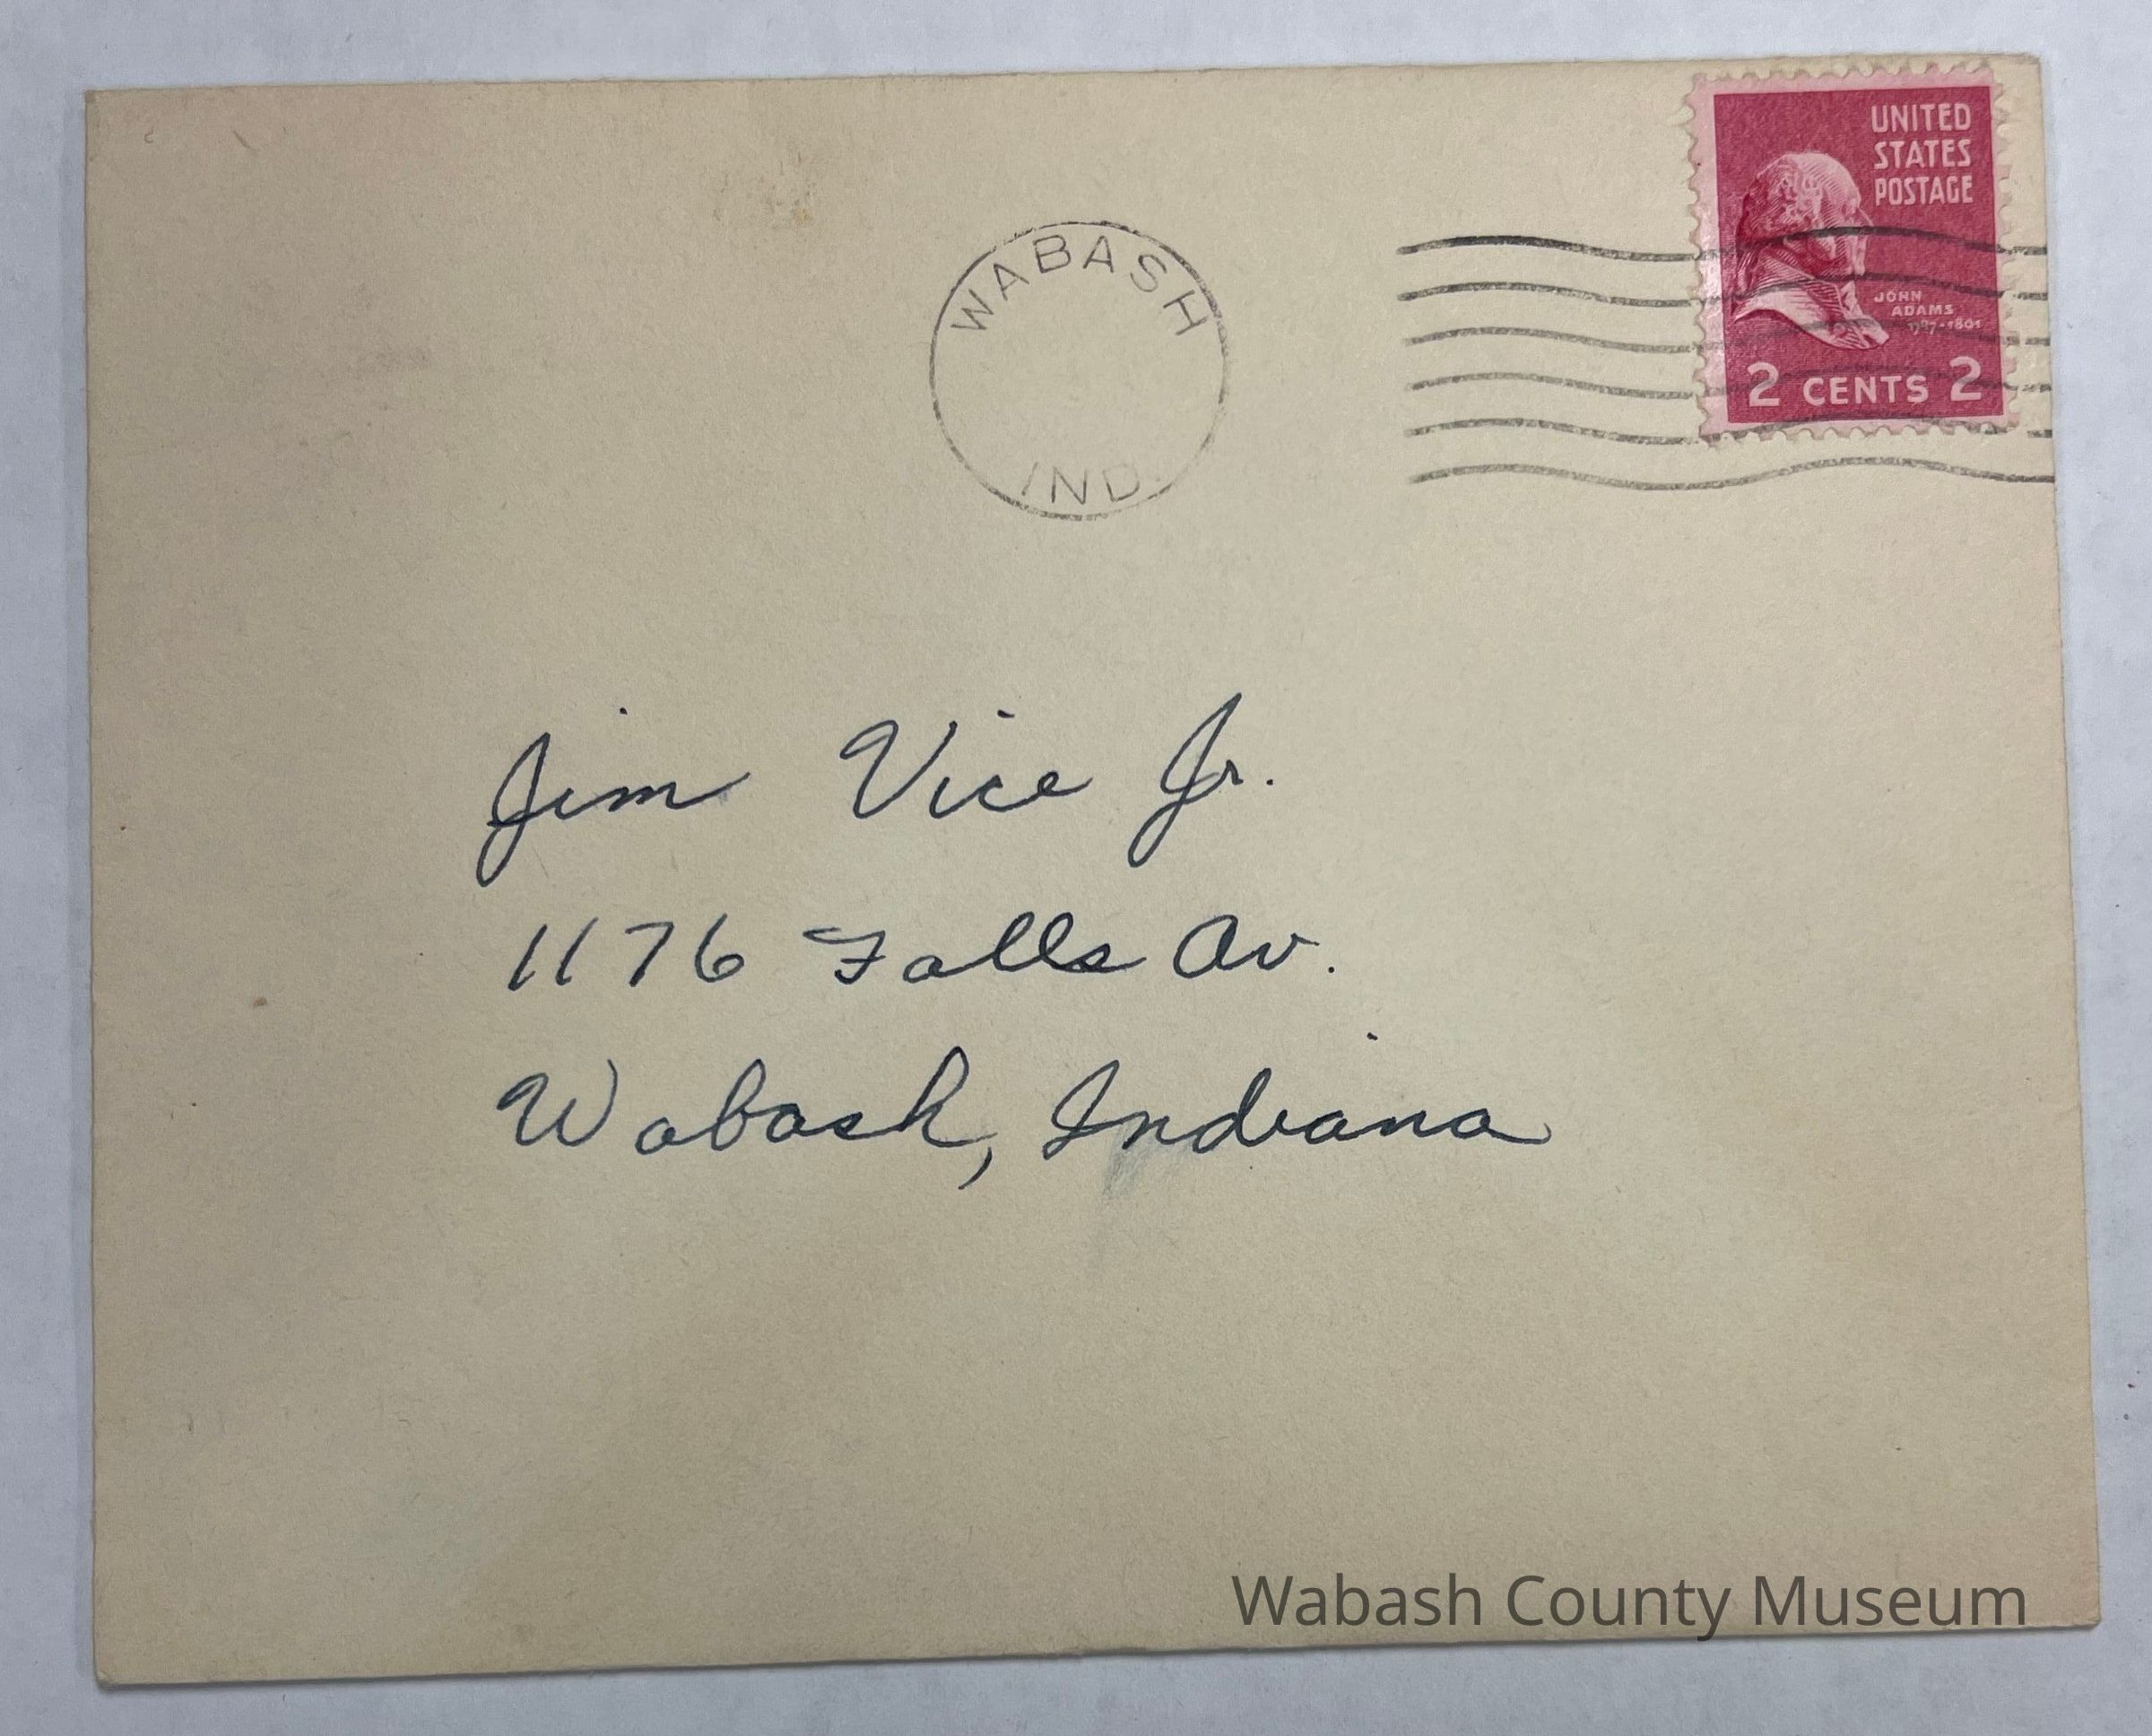 UNITED
STATES
POSTAGE
WABASH
IND.
JOHN
ADAMS
1797-1801
2 CENTS 2
Jim Vice Jr.
1176 Falls Av.
Wabash, Indiana
Wabash County Museum